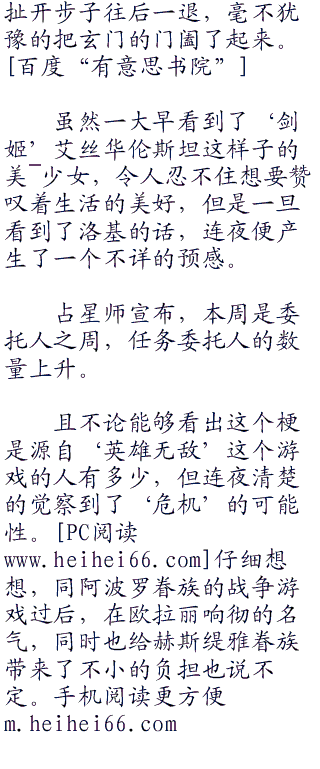 扯开步子往后一退，毫不犹
豫的把玄门的门阖了起来。
[百度“有意思书院”]
虽然一大早看到了‘剑
姬’艾丝华伦斯坦这样子的
美_少女，令人忍不住想要赞
叹着生活的美好，但是一旦
看到了洛基的话，连夜便产
生了一个不详的预感。
占星师宣布，本周是委
托人之周，任务委托人的数
量上升。
且不论能够看出这个梗
是源自‘英雄无敌’这个游
戏的人有多少，但连夜清楚
的觉察到了‘危机’的可能
性。[PC阅读
www.heihei66.com]仔细想
想，同阿波罗眷族的战争游
戏过后，在欧拉丽响彻的名
气，同时也给赫斯缇雅眷族
带来了不小的负担也说不
定。手机阅读更方便
m.heihei66.com